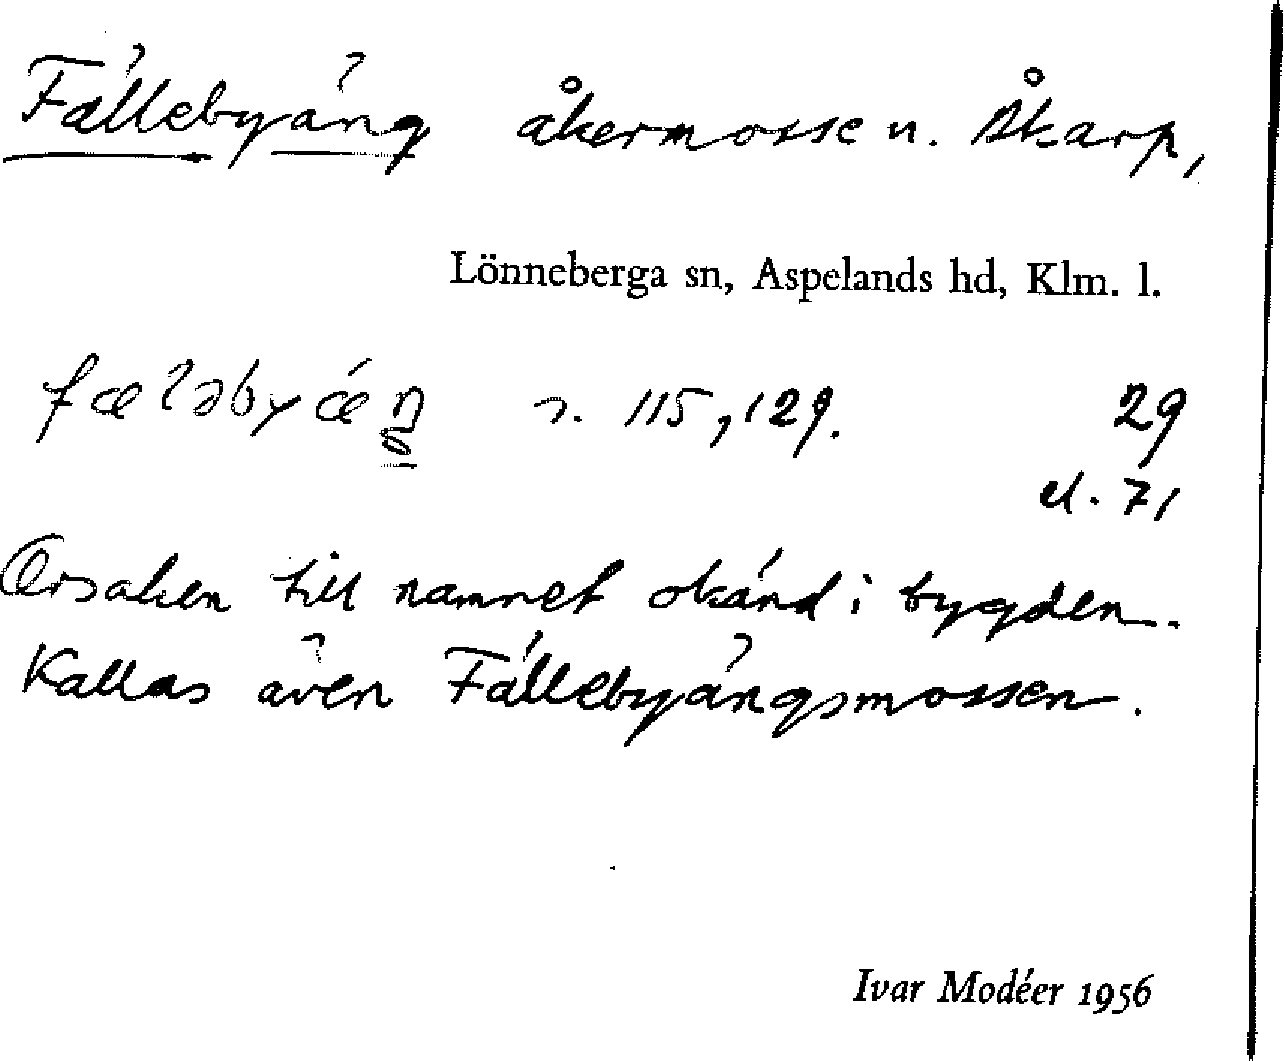 Fällebyäng åkermosse u. Åkarp,
Lönneberga sn, Aspelands hd, Klm. l.
s. 115, 129. 29
el. 71
Orsaken till namnet okänd i bygden.
Kallas även Fällebyängsmossen.
Ivar Modéer 1956